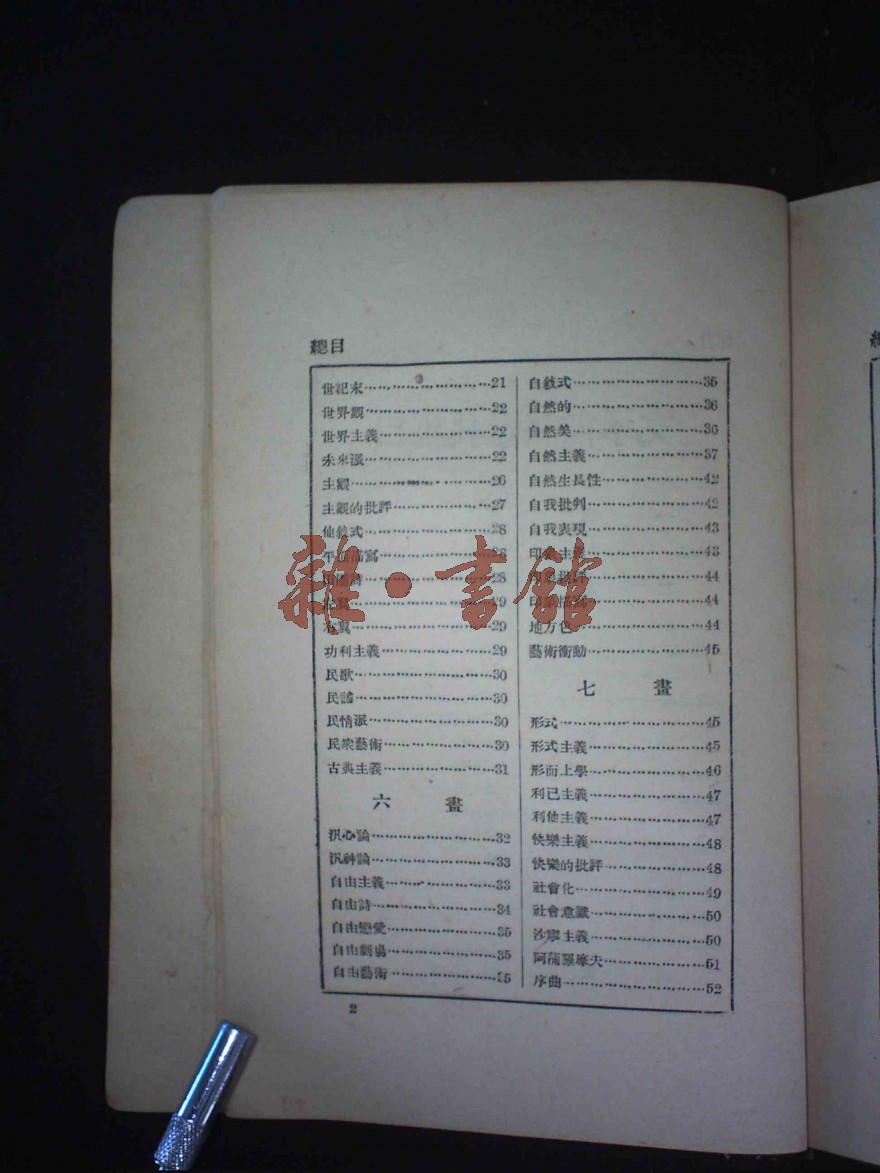 總目
世紀末……………………21
世界觀……………………22
世界主義…………………22
未來派……………………22
主觀………………………26
主觀的批評………………27
他敘式……………………28
平面描寫…………………28
……………………28
……………………29
右翼………………………29
功利主義…………………29
民歌………………………30
民謠………………………30
民情派……………………30
民衆藝術…………………30
古典主義…………………31
六 畫
汎心論……………………32
汎神論……………………33
自由主義…………………33
自由詩……………………34
自由戀愛…………………35
自由劇場…………………35
自由藝術…………………35
自敘式……………………35
自然的……………………36
自然美……………………36
自然主義…………………37
自然生長性………………42
自我批判…………………42
自我表現…………………43
印象主義…………………43
印象批評…………………44
印象描寫…………………44
地方色……………………44
藝術衝動…………………45
七 畫
形式………………………45
形式主義…………………45
形而上學…………………46
利己主義…………………47
利他主義…………………47
快樂主義…………………48
快樂的批評………………48
社會化……………………49
社會意識…………………50
沙寧主義…………………50
阿蒲羅摩夫………………51
序曲………………………52
2
雜·書館